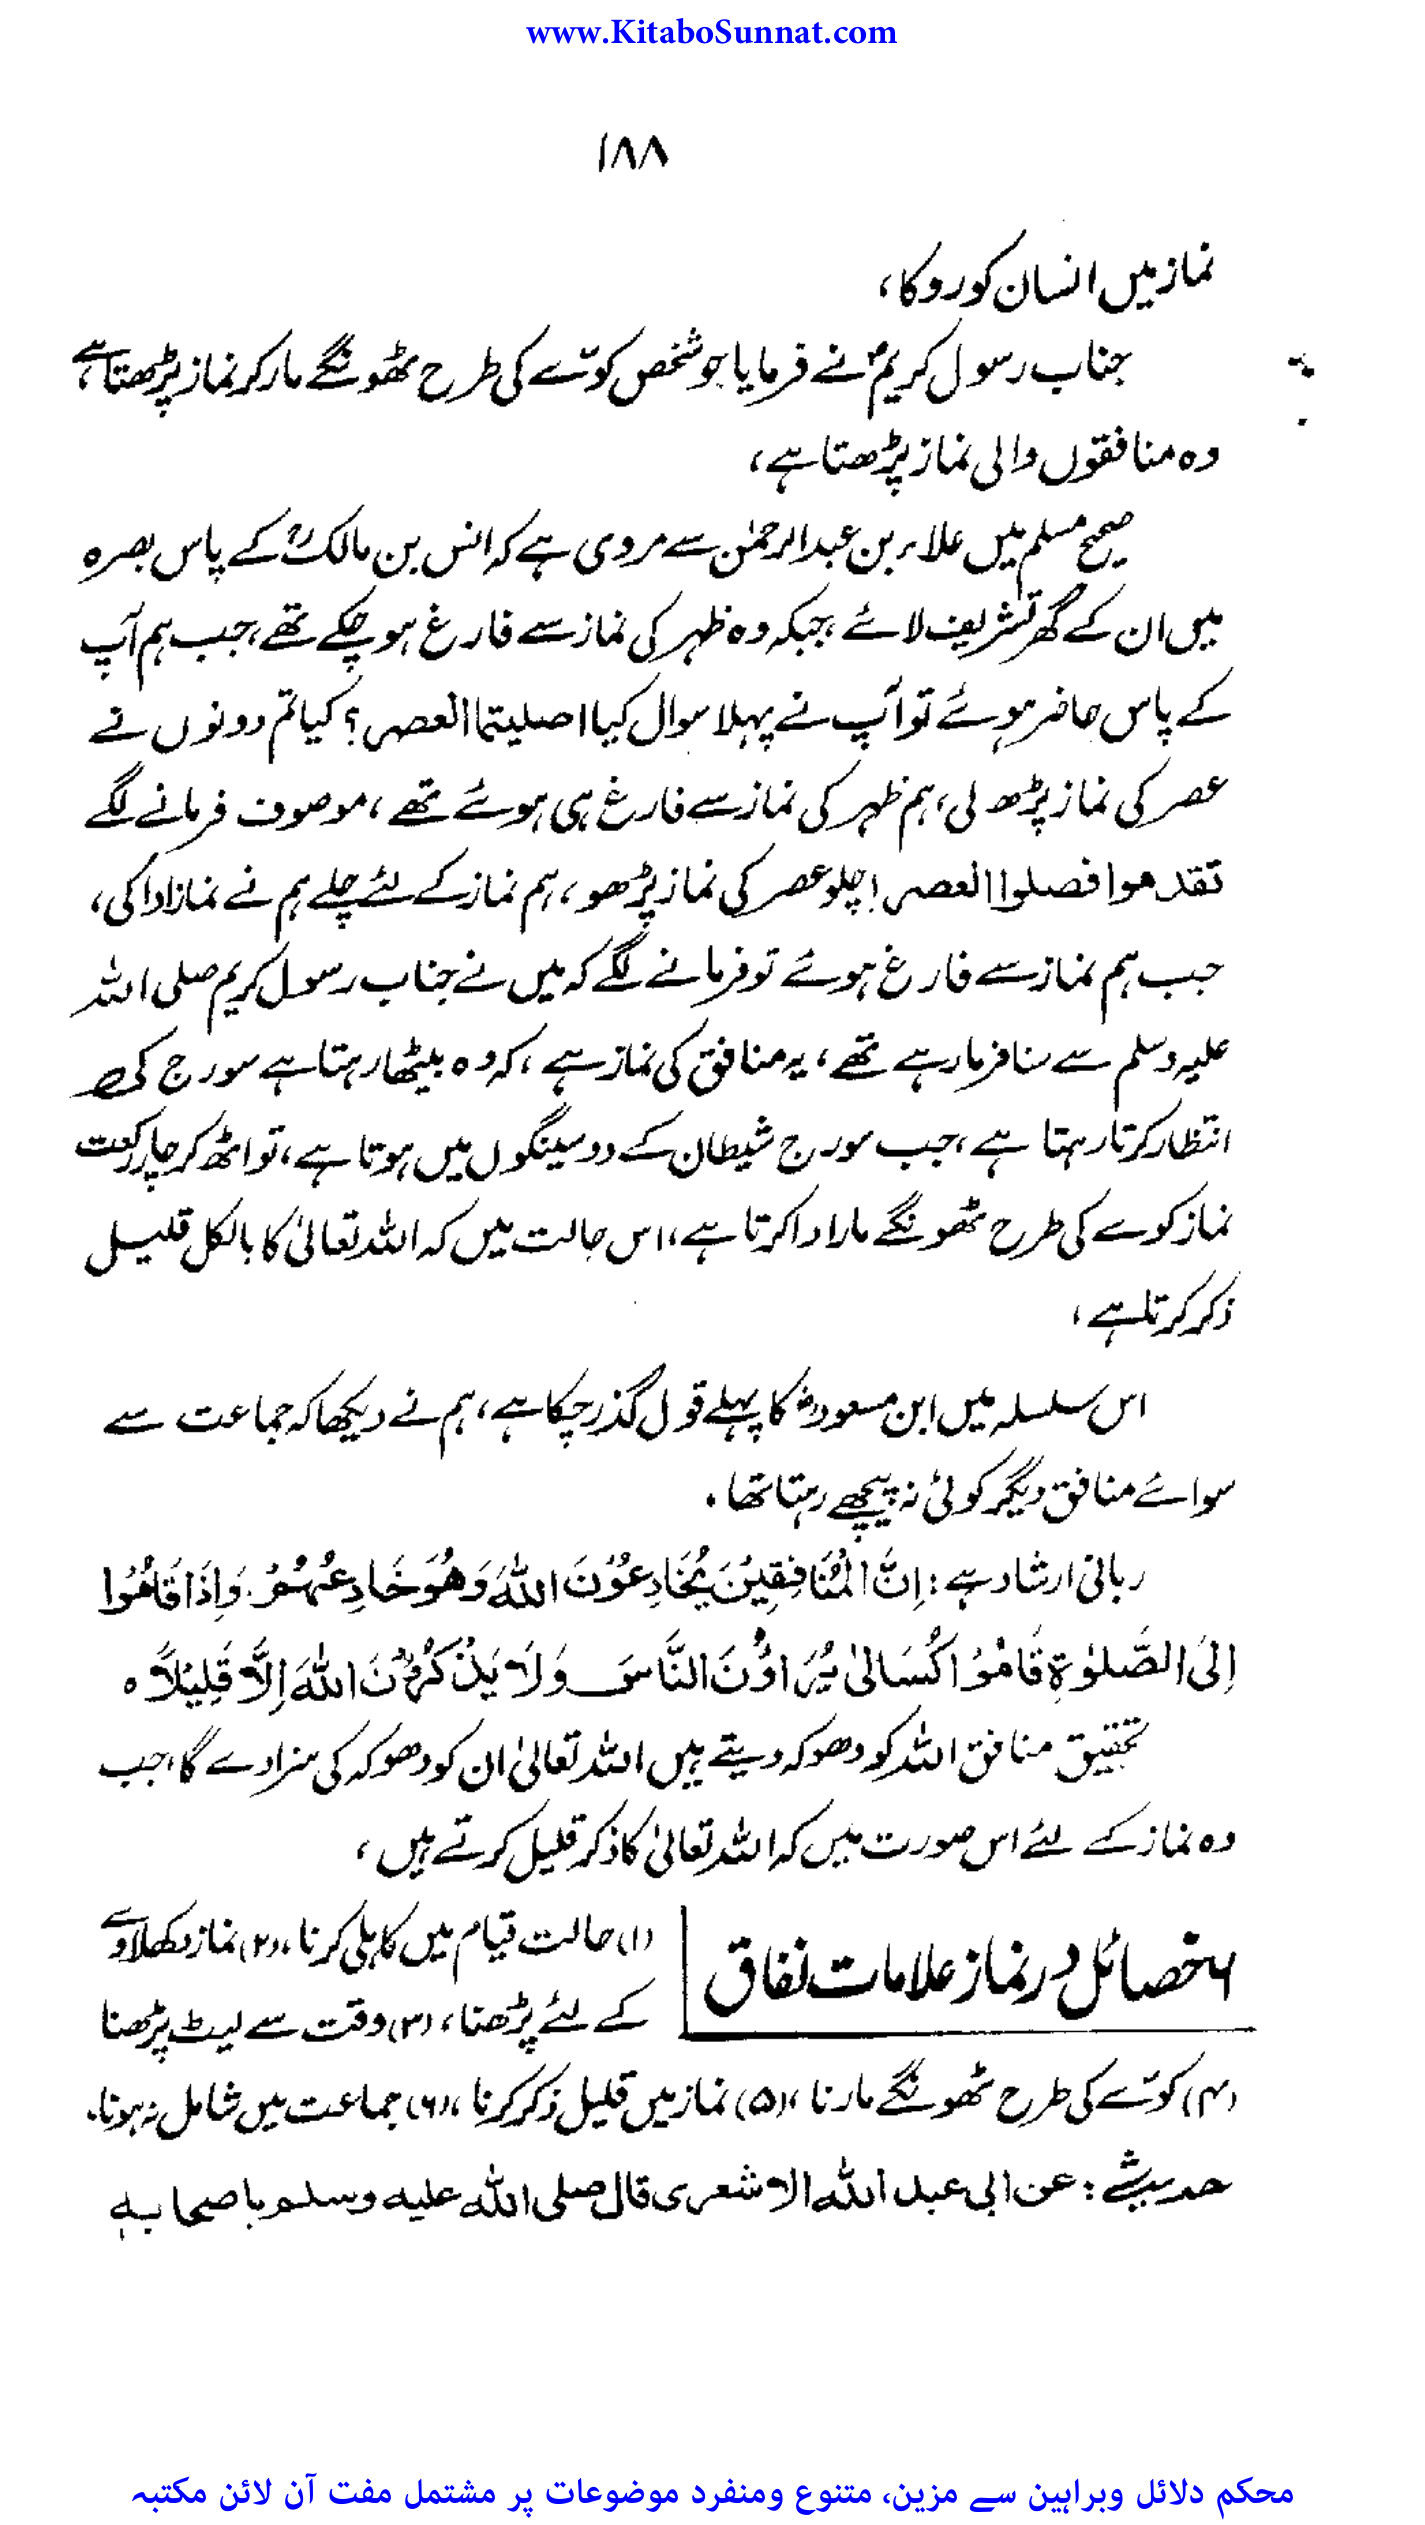 www.KitaboSunnat.com
۱۸۸
نماز میں انسان کو روکا،
جناب رسول کریمؐ نے فرمایا جو شخص کوّے کی طرح ٹھونگے مار کر نماز پڑھتا ہے،
وہ منافقوں والی نماز پڑھتا ہے،
صحیح مسلم میں علاء بن عبدالرحمٰن سے مروی ہے کہ انس بن مالکؓ کے پاس بصرہ
میں ان کے گھر تشریف لائے، جبکہ وہ ظہر کی نماز سے فارغ ہو چکے تھے، جب ہم آپ
کے پاس حاضر ہوئے تو آپ نے پہلا سوال کیا اصلیتما العصر؟ کیا تم دونوں نے
عصر کی نماز پڑھ لی، ہم ظہر کی نماز سے فارغ ہی ہوئے تھے، موصوف فرمانے لگے
تقدموا فصلوا العصر! چلو عصر کی نماز پڑھو، ہم نماز کے لئے چلے ہم نے نماز ادا کی،
جب ہم نماز سے فارغ ہوئے تو فرمانے لگے کہ میں نے جناب رسول کریم صلی اللہ
علیہ وسلم سے سنا فرما رہے تھے، یہ منافق کی نماز ہے، کہ وہ بیٹھا رہتا ہے سورج کی
انتظار کرتا رہتا ہے، جب سورج شیطان کے دو سینگوں میں ہوتا ہے، تو اٹھ کر چار رکعت
نماز کوے کی طرح ٹھونگے مار ادا کرتا ہے، اس حالت میں کہ اللہ تعالیٰ کا بالکل قلیل
ذکر کرتا ہے،
اس سلسلہ میں ابن مسعودؓ کا پہلے قول گذر چکا ہے، ہم نے دیکھا کہ جماعت سے
سوائے منافق دیگر کوئی نہ پیچھے رہتا تھا۔
ربانی ارشاد ہے: اِنَّ الْمُنَافِقِیْنَ یُخَادِعُوْنَ اللّٰهَ وَهُوَ خَادِعُهُمْ۔ وَاِذَا قَامُوْا
اِلَی الصَّلٰوةِ قَامُوْا کُسَالیٰ یُرَاؤُنَ النَّاسَ وَلَا یَذْکُرُوْنَ اللّٰهَ اِلَّا قَلِیْلًا ہ
تحقیق منافق اللہ کو دھوکہ دیتے ہیں اللہ تعالیٰ ان کو دھوکہ کی سزا دے گا، جب
وہ نماز کے لئے اس صورت میں کہ اللہ تعالیٰ کا ذکر قلیل کرتے ہیں،
۶ خصائل در نماز علامات نفاق
(۱) حالت قیام میں کاہلی کرنا، (۲) نماز دکھلاوے
کے لئے پڑھنا، (۳) وقت سے لیٹ پڑھنا
(۴) کوّے کی طرح ٹھونگے مارنا، (۵) نماز میں قلیل ذکر کرنا، (۶) جماعت میں شامل نہ ہونا۔
حدیث: عن ابی عبد اللہ الاشعری قال صلی اللہ علیہ وسلم باصحابہ
محکم دلائل وبراہین سے مزین، متنوع ومنفرد موضوعات پر مشتمل مفت آن لائن مکتبہ